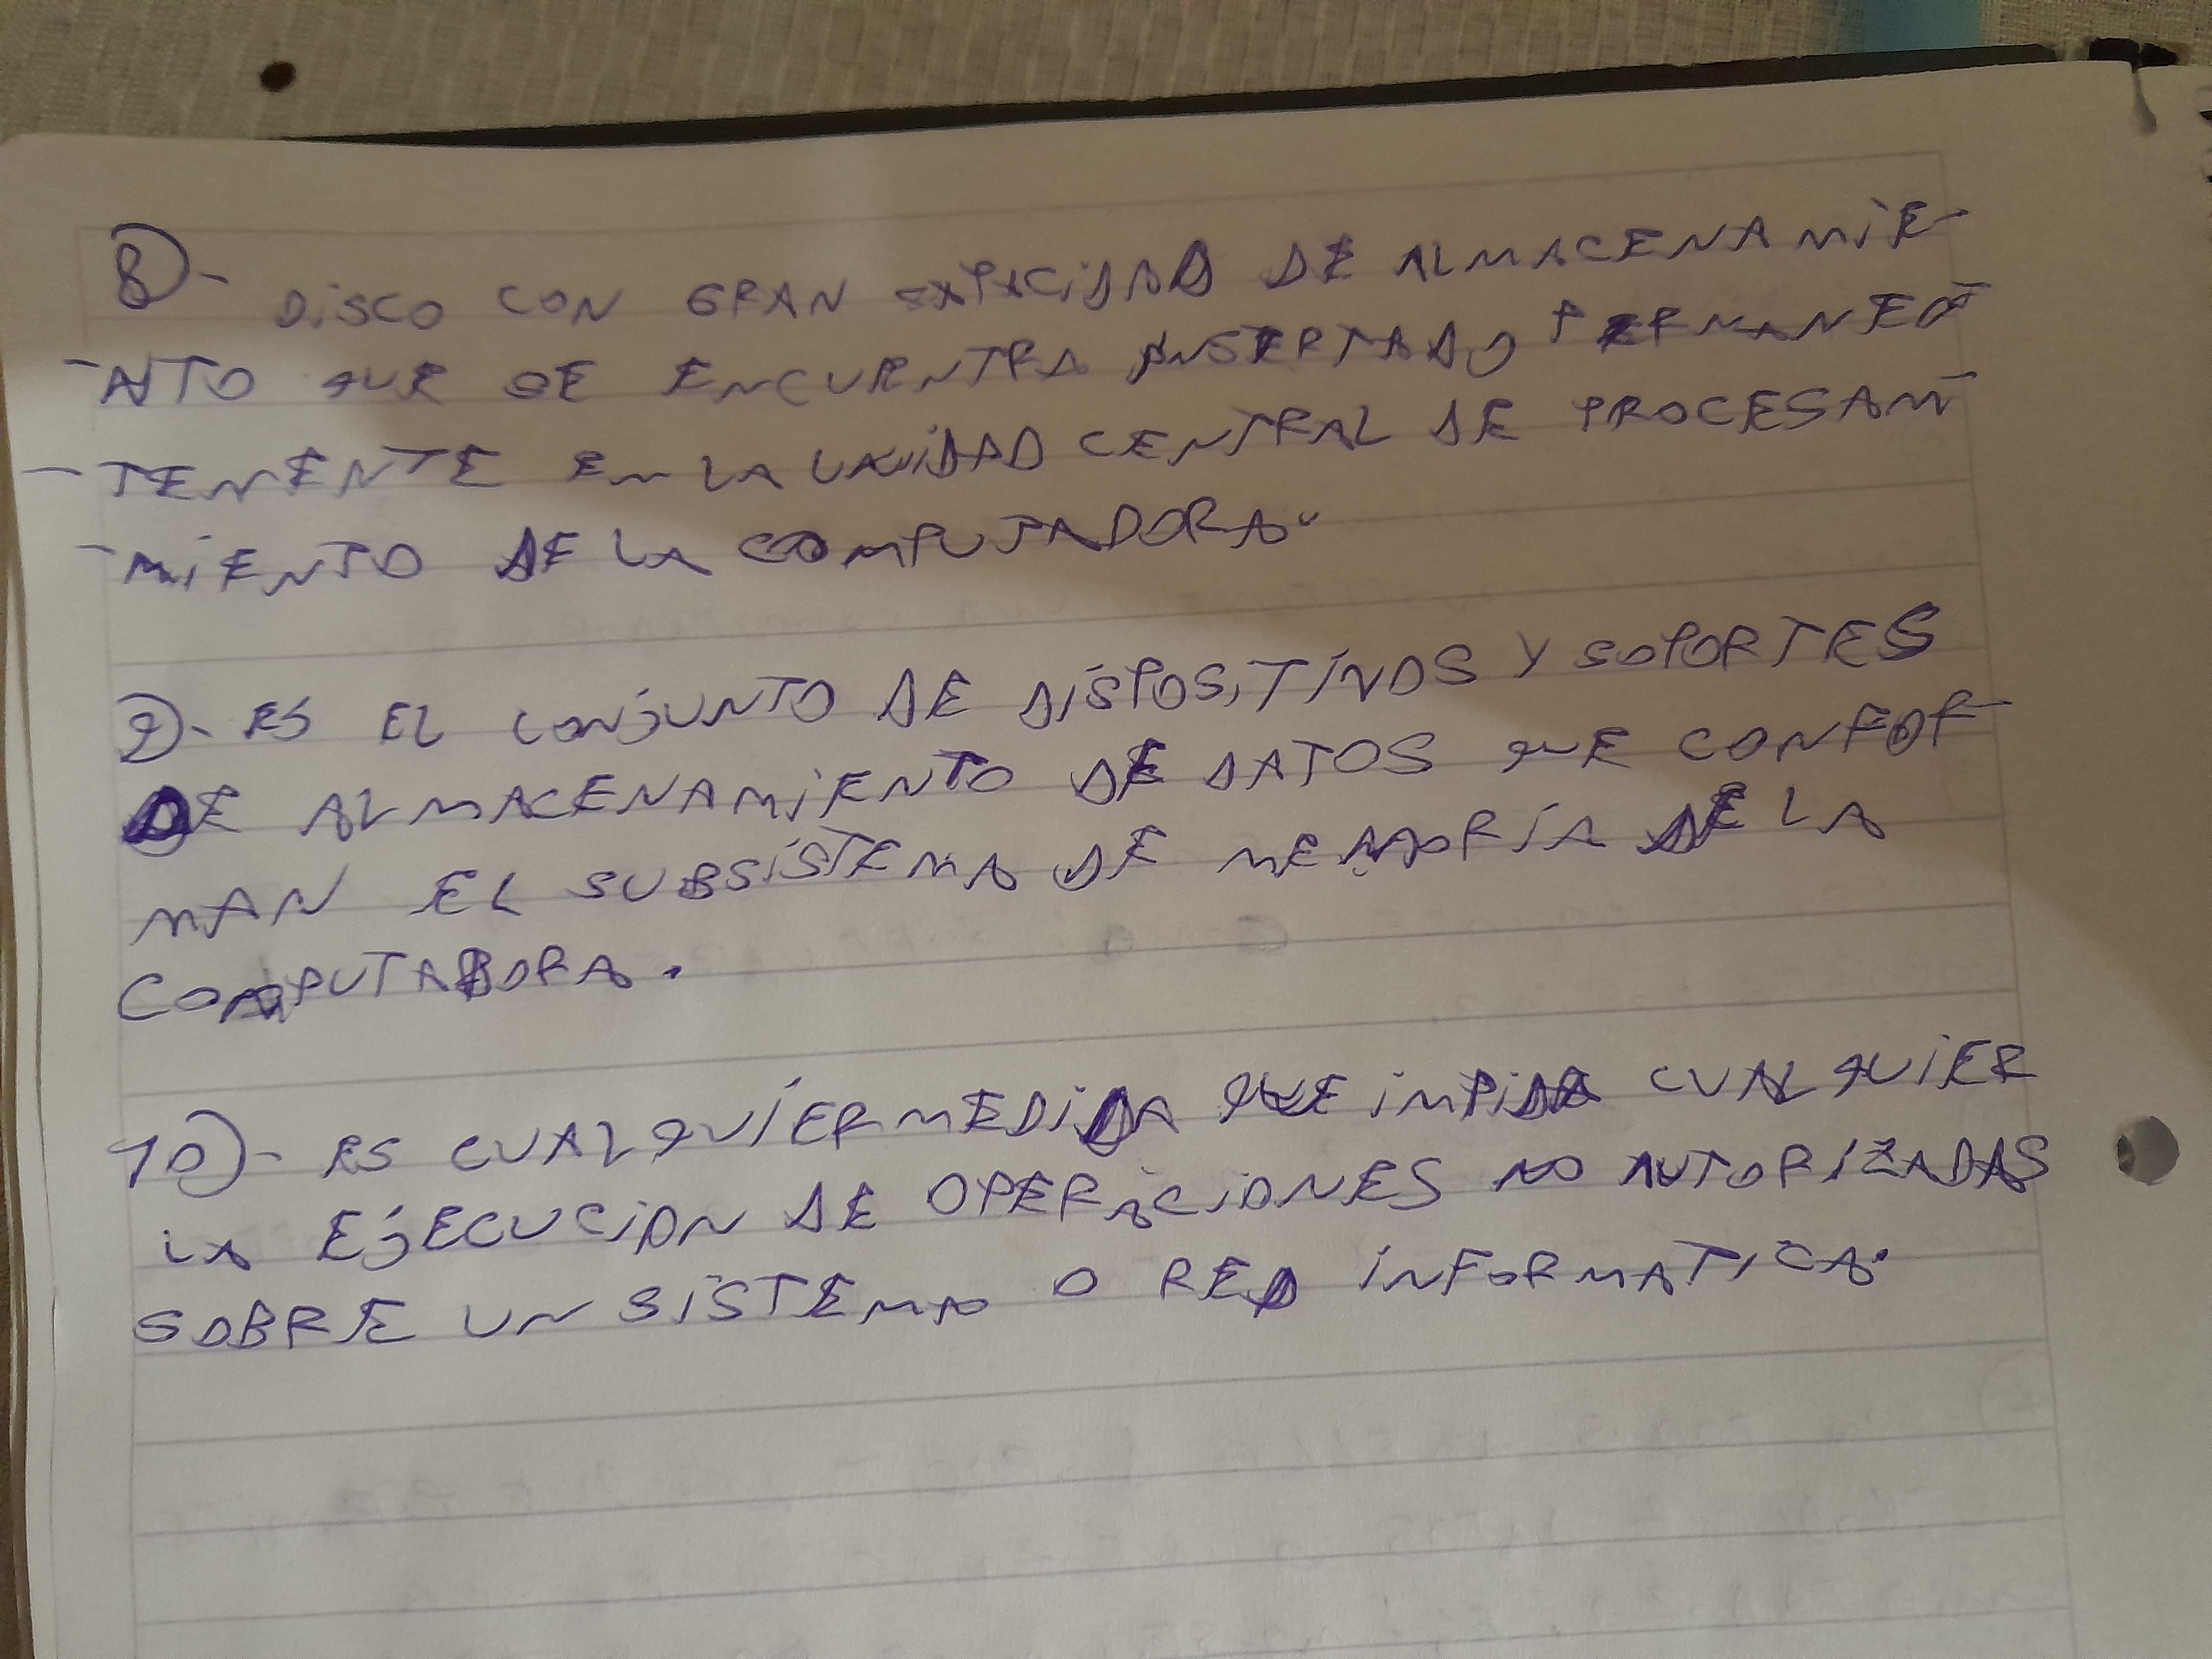 8)- DISCO CON GRAN CAPACIDAD DE ALMACENAMIE-
-NTO QUE SE ENCUENTRA INSERTADO PERMANEO-
-TENENTE EN LA UNIDAD CENTRAL DE PROCESAM-
-MIENTO DE LA COMPUTADORA.
9)- ES EL CONJUNTO DE DISPOSITIVOS Y SOPORTES
DE ALMACENAMIENTO DE DATOS QUE CONFOR-
MAN EL SUBSISTEMA DE MEMORIA DE LA
COMPUTADORA.
10)- ES CUALQUIER MEDIDA QUE IMPIDA CUALQUIER
LA EJECUCION DE OPERACIONES NO AUTORIZADAS
SOBRE UN SISTEMA O RED INFORMATICA.